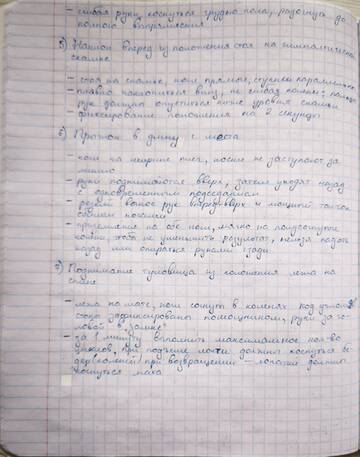 - сгибая руки, коснуться грудью пола, разогнуть до
полного выпрямления
5) Наклон вперёд из положения стоя на гимнастической
скамье
- стоя на скамье, ноги прямые, ступни параллельно
- плавно наклониться вниз, не сгибая колени,
рук должны опуститься ниже уровня скамьи
- фиксирование положения на 2 секунды
6) Прыжок в длину с места
- ноги на ширине плеч, носки не заступают за
линию
- руки поднимаются вверх, затем уходят назад
с одновременным подседанием
- резкий вынос рук вперёд-вверх и мощный толчок
обеими ногами
- приземление на обе ноги, мягко на полусогнутые
колени, чтоб не уменьшить результат, нельзя падать
назад или опираться руками сзади
7) Поднимание туловища из положения лёжа на
спине
- лёжа на мате, ноги согнуты в коленях под углом
стопы зафиксированы помощником, руки за го-
ловой в "замке"
- за 1 минуту выполнить максимальное кол-во
циклов, при подъёме локти должны коснуться бё-
дер (коленей) при возвращении - лопатки должны
коснуться мата